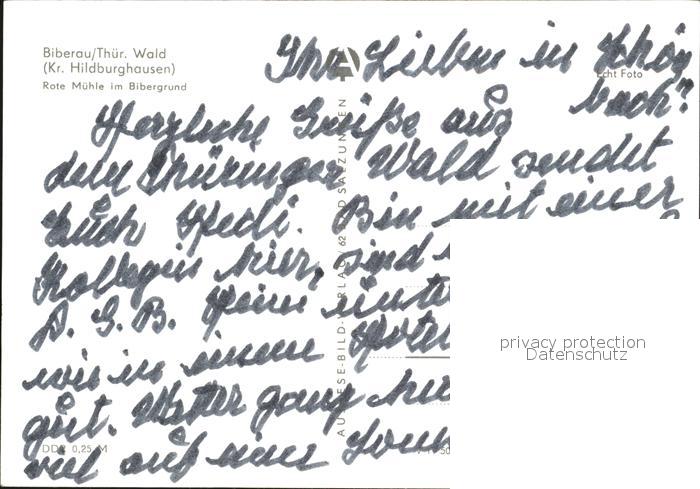 Biberau/Thür. Wald
(Kr. Hildburghausen)
Rote Mühle im Bibergrund
Echt Foto
Ihr Lieben in Schön
bach?
Herzliche Grüße aus
dem Thüringer Wald sendet
Euch Hedi. Bin mit einer
Kollegin hier, sind
D. G. B. Heim unter
wie in einem Hotel
gut. Wetter ganz
viel auf einer
AUSLESE-BILD-VERLAG / 62 BAD SALZUNGEN
DDR 0,25 M
privacy protection
Datenschutz